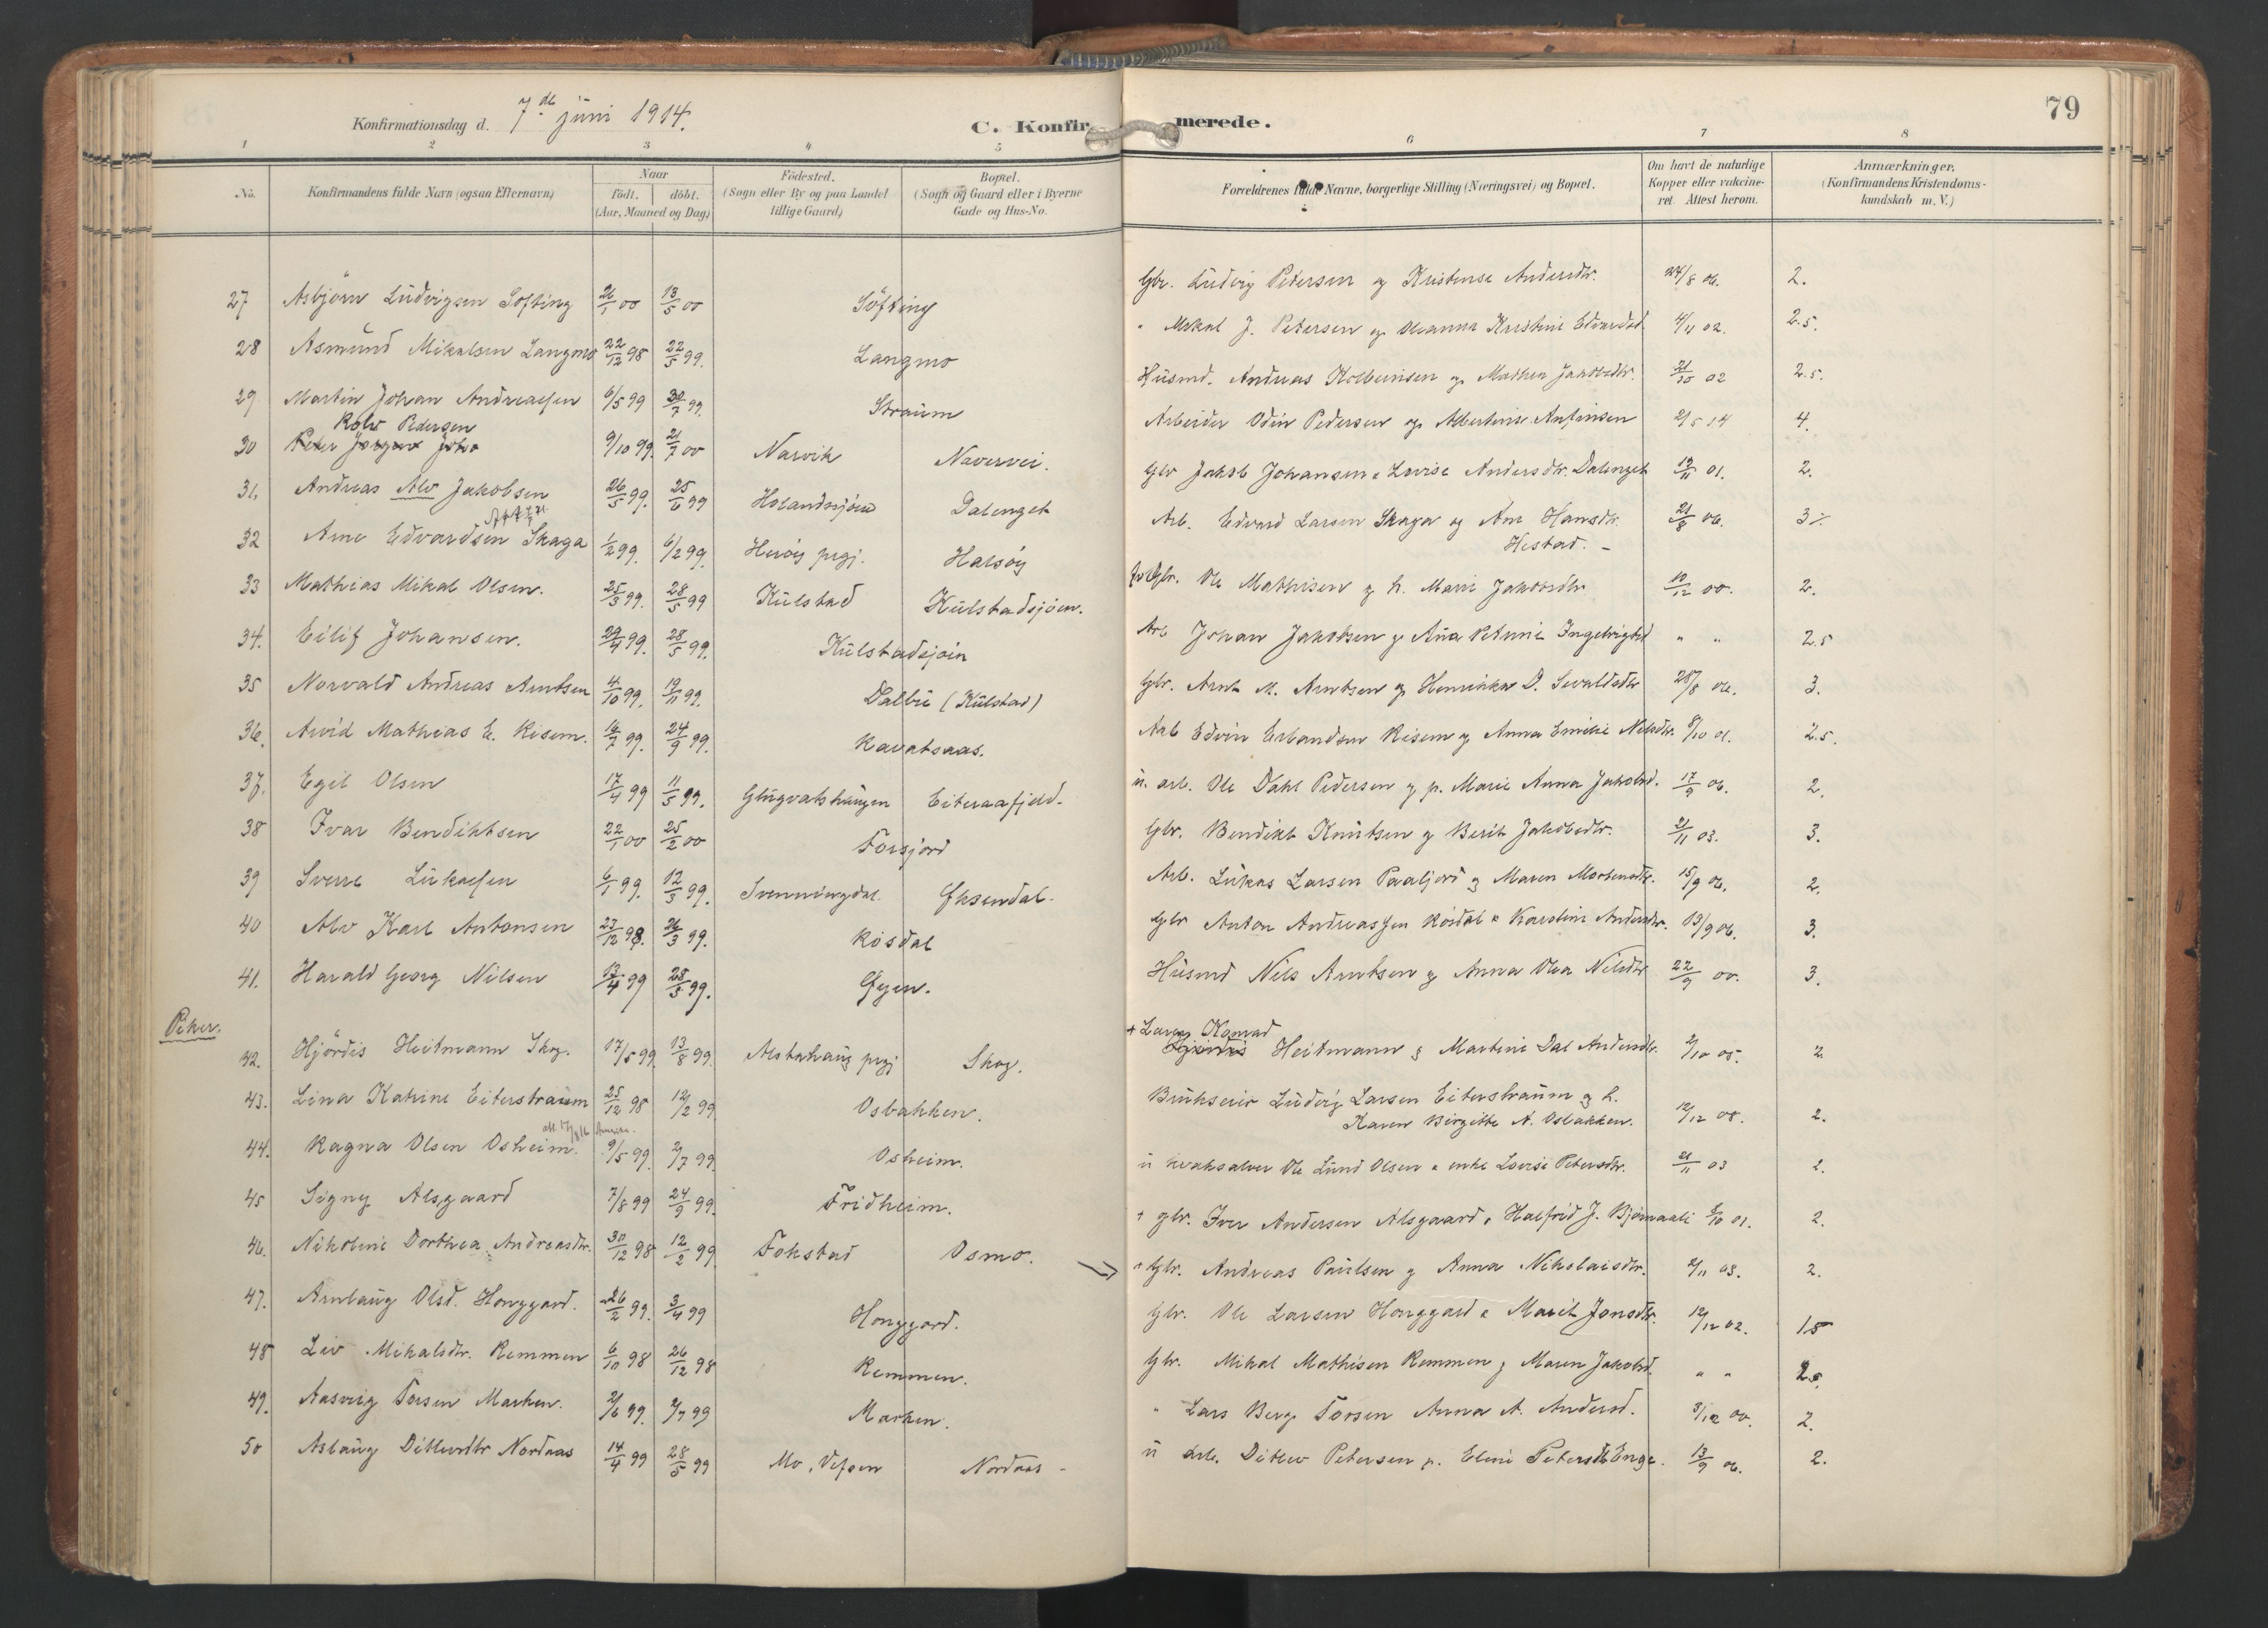 Konfirmationsdag d. 7de juni 1914.
C. Konfirmerede.
79
1 2 3 4 5 6 7 8
No. Konfirmandens fulde Navn (ogsaa Efternavn) Naar født. døbt. (Aar, Maaned og Dag) Fødested. (Sogn eller By og paa Landet tillige Gaard) Bopæl. (Sogn og Gaard eller i Byerne Gade og Hus-No. Forældrenes fulde Navne, borgerlige Stilling (Næringsvei) og Bopæl. Om havt de naturlige Kopper eller vakcineret. Attest herom. Anmærkninger. (Konfirmandens Kristendomskundskab m. V.)
27 Asbjørn Ludvigsen Søfting 26/1 00 13/5 00 Søfting Gbr. Ludvig Petersen og Kristense Andersdtr. 24/8 06. 2.
28 Asmund Mikalsen Langmo 22/12 98 22/5 99. Langmo " Mikal J. Petersen og Oleanna Kristine Edvardsd. 4/11 02. 2.5.
29 Martin Johan Andreassen 6/5 99 30/7 99. Straum Husmd. Andreas Kolbeinsen og Mathea Jakobsdtr. 21/10 02 2.5.
Rolv Pedersen
30 Peter Jørgen Johs 9/10 99. 21/7 00 Narvik Navervei. Arbeider Odin Pedersen og Albertine Anfinsen 2/5 14 4.
31. Andreas Alv Jakobsen 26/5 99. 25/6 99 Holandsjøen Dalenget Gbr Jakob Johansen & Lovise Andersdtr. Dalenget 19/11 01. 2.
32 Arne Edvardsen Skaga 1/2 99. 6/2 99. Herøy prgj. Halsøy Arb. Edvard Larsen Skaga og Ane Hansdtr. Hestad. - 21/8 06. 3
33 Mathias Mikal Olsen. 25/3 99. 28/5 99 Kulstad Kulstadsjøen. Gbr. Ole Mathisen og h. Marie Jakobsdtr 10/12 00. 2.
34. Eilif Johansen. 29/4 99. 28/5 99. Kulstadsjøen Arb Johan Jakobsen og Petrine Ingebrigtsd " " 2.5
35 Norvald Andreas Arntsen 4/10 99. 19/11 99. Dalbu (Kulstad) Gbr. Arnt M. Arntsen og Henrikka D. Sivaldsdtr 28/8 06. 3.
36. Arvid Mathias E. Risem. 16/7 99. 24/9 99. Kavatsaas. Arb Edvin Erlandsen Risem og Anna Emilie Nilsdtr. 8/10 01. 2.5.
37. Egil Olsen 17/4 99 11/5 99. Glugvatshaugen Eiteraafjeld. u. arb. Ole Dahl Pedersen og p. Marie Anna Jakobsd. 17/9 06. 2.
38 Ivar Bendiktsen 22/1 00 25/2 00 Forsjord Gbr. Bendikt Knutsen og Berit Jakobsdtr. 21/11 03. 3.
39 Sverre Lukassen 6/1 99. 12/3 99. Svenningdal. Øksendal. Arb. Lukas Larsen Paaljord og Maren Mortensdtr. 15/9 06. 2.
40 Alv Karl Antonsen 23/12 98. 26/3 99. Rosdal Gbr Anton Andreassen Rosdal & Karoline Andersdtr. 13/9 06. 3.
41. Harald Georg Nilsen 13/4 99 28/5 99. Øyen. Husmd Nils Arntsen og Anna Olea Nilsdtr 22/9 00. 3.
Piker.
42. Hjørdis Heitmann Skog. 17/5 99. 13/8 99. Alstahaug prgj Skog. + Konrad Heitmann & Martine Dal Andersdtr. 2/10 05. 2
43. Lina Katrine Eiterstraum 25/12 98 12/2 99 Osbakken. Brukseier Ludvig Larsen Eiterstraum og h. Karen Birgitte A. Osbakken. 12/12 08. 2.
44. Ragna Olsen Osheim. 9/5 99. 2/7 99 Osheim. u Ole Lund Olsen & enke Lovise Petersdtr. 21/11 03 2.
45 Signy Alsgaard 7/8 99 24/9 99. Fridheim. + gbr. Iver Andersen Alsgaard & Halfrid J. Bjørnaali 8/10 01. 2.
46. Nikoline Dorthea Andreasdtr. 30/12 98 12/2 99 Fokstad Osmo. Gbr. Andreas Paulsen og Anna Nikolaisdtr. 2/11 03. 2.
47. Arnlaug Olsd. Honggard. 26/2 99. 3/4 99 Honggard. Gbr. Ole Larsen Honggard & Marit Jonsdtr. 12/12 02. 1.5
48 Liv Mikalsdtr. Remmen 6/10 98 26/12 98 Remmen. Gbr. Mikal Mathisen Remmen og Maren Jakobsd. " " 2.5.
49. Aasveig Torsen Marken. 2/6 99. 2/7 99 Marken. " Lars Berg Torsen Anna A. Andersd. 3/12 00. 2.
50 Aslaug Ditlevsdtr Nordaas 14/4 99 28/5 99 Mo, Vefsen Nordaas - u arb. Ditlev Petersen p. Eline Petersdtr Enge. 13/9 06. 2.